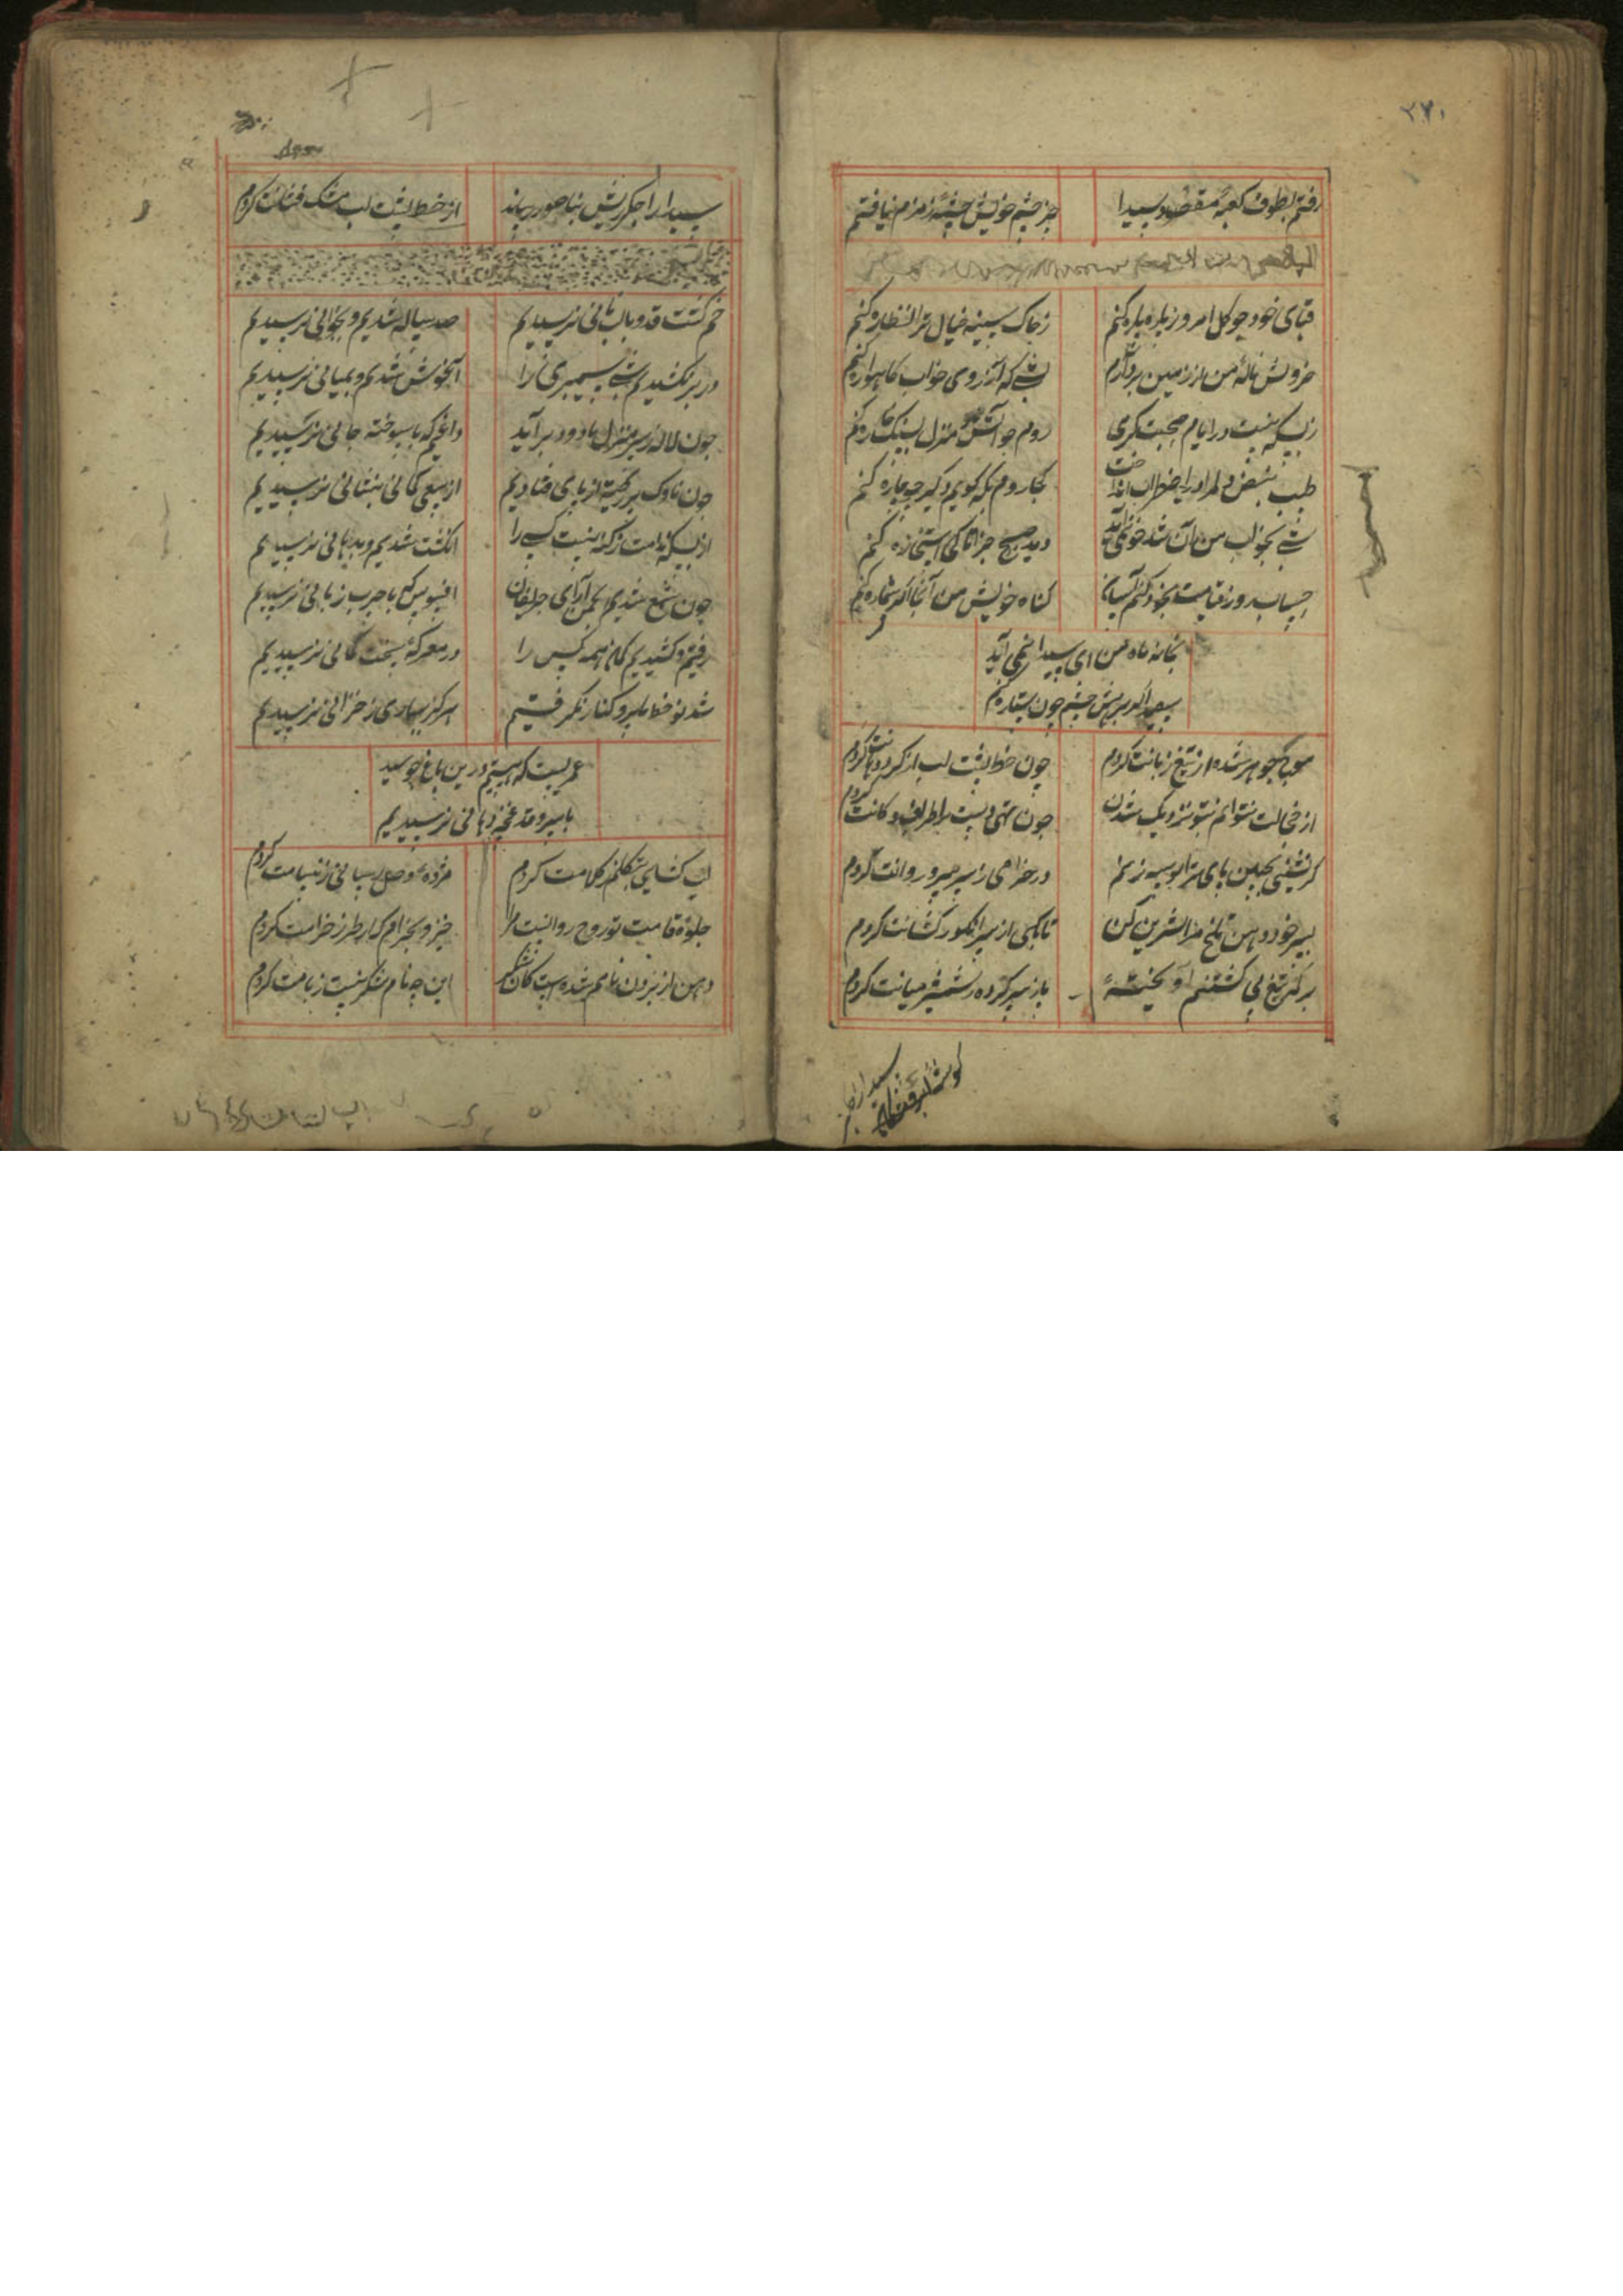 ۲۷۰
رفتم بطوف کعبهٔ مقصود سیدا
جز چشم خویش چشمهٔ زمزم نیافتم
قبای خود چو گل امروز پاره پاره کنم
ز چاک سینه خیال ترا نظاره کنم
خروش نالهٔ من از زمین بردآرم
شبی که آرزوی خواب گاهواره کنم
ز بسکه نیست درایام صحبت گرمی
روم چو آتش منزل بسنگ خاره کنم
طبیب نبض دلم دید اضطراب
کجا روم بکه گویم دگر چه چاره کنم
دمید صبح جزا تا کی استخاره کنم
حساب روز قیامت بخود کنم آسان
گناه خویش من آنجا اگر شماره کنم
بخانه ماه من ای سیدا نمی آید
بصید اگر برهش چشم چون ستاره کنم
محو یک جوهر شده از تیغ زبانت کردم
چون خط پشت لب از گرد دهانت کردم
از خجالت نتوانم بتو نزدیک شدن
چون تهی دست باطراف دکانت کردم
گر نشینی بچمن پای ترا بوسه زنم
در خرامی ز سر سرو روانت کردم
بسر خود دهن تلخ مرا شیرین کن
تا بکی از سر انگور کشانت کردم
بر کمر تیغ پی کشتنم آویخته‌ٔ
باز سر کرده شمشیر میانت کردم
سیدا را جگر ریش بناسور رساند
از خط پشت لب مشک فشانت کردم
خم گشت قد و بالب نانی نرسیدیم
صد ساله شدیم و بجوانی نرسیدیم
در بر نکشیدیم شبی سیمبری را
آغوش شدیم و بمیانی نرسیدیم
چون لاله ز سر منزل ما دود برآید
داغیم که با سوخته جانی نرسیدیم
چون ناوک پر ریخته از پای فتادیم
از سعی کمانی بنشانی نرسیدیم
از بسکه ندامت ز گنه نیست کسی را
انگشت شدیم و بدهانی نرسیدیم
چون شمع شدیم انجمن آرای حریفان
افسوس که با چرب زبانی نرسیدیم
رفتیم و کشیدیم کمان همه کس را
در معرکه سخت کمانی نرسیدیم
شد نوخط ما پیر و کنارش نگرفتیم
هرگز ببهاری ز خزانی نرسیدیم
عمریست که هستیم درین باغ چو سید
با سرو قد غنچه دهانی نرسیدیم
لب گشایی بتکلم ز کلامت کردم
مژدهٔ وصل رسانی ز پیامت کردم
جلوهٔ قامت تو روح روانیست مرا
خیز و بخرام که از طرز خرامت کردم
دهن از بردن نامم شده است کان شکر
این چه نام شکرینست ز نامت کردم